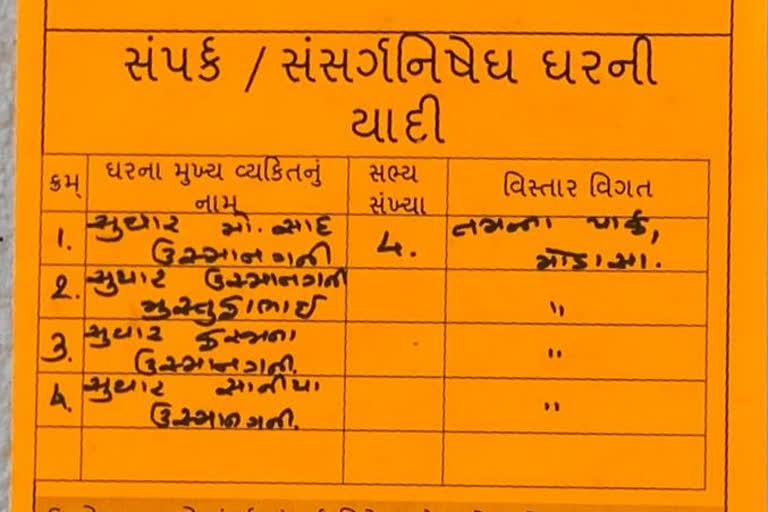 સંપર્ક / સંસર્ગનિષેધ ઘરની
યાદી
ક્રમ્ ઘરના મુખ્ય વ્યકિતનું નામ્ સભ્ય સંખ્યા વિસ્તાર વિગત
૧. સુથાર મો. સાદ ઉસ્માનગની ૪. તમન્ના પાર્ક, મોડાસા.
૨. સુથાર ઉસ્માનગની મુસ્તુફાભાઈ "
૩. સુથાર ઉસ્માનગની. "
૪. સુથાર સાનીયા ઉસ્માનગની. "